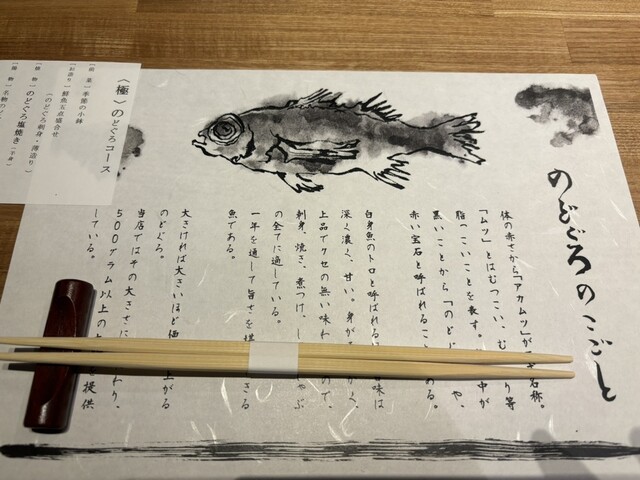 のどぐろのこごと
体の赤さから「アカムツ」が 名称。
「ムツ」とはむつこい、む り等
脂っこいことを表す。 中が
黒いことから「のど や、
赤い宝石と呼ばれるこ ある。
白身魚のトロと呼ばれる 味は
深く濃く、甘い。身が かく、
上品でクセの無い味わ ので、
刺身、焼き、煮つけ、し ゃぶ
の全てに適している。
一年を通して旨さを堪 きる
魚である。
大きければ大きいほど価 上がる
のどぐろ。
当店ではその大きさに わり、
500グラム以上の 提供
している。
〈極〉のどぐろコース
【前菜】季節の小鉢
【お造り】鮮魚五点盛合せ
(のどぐろ刺身・薄造り)
【焼物】のどぐろ塩焼き(半身)
【鍋物】名物のど